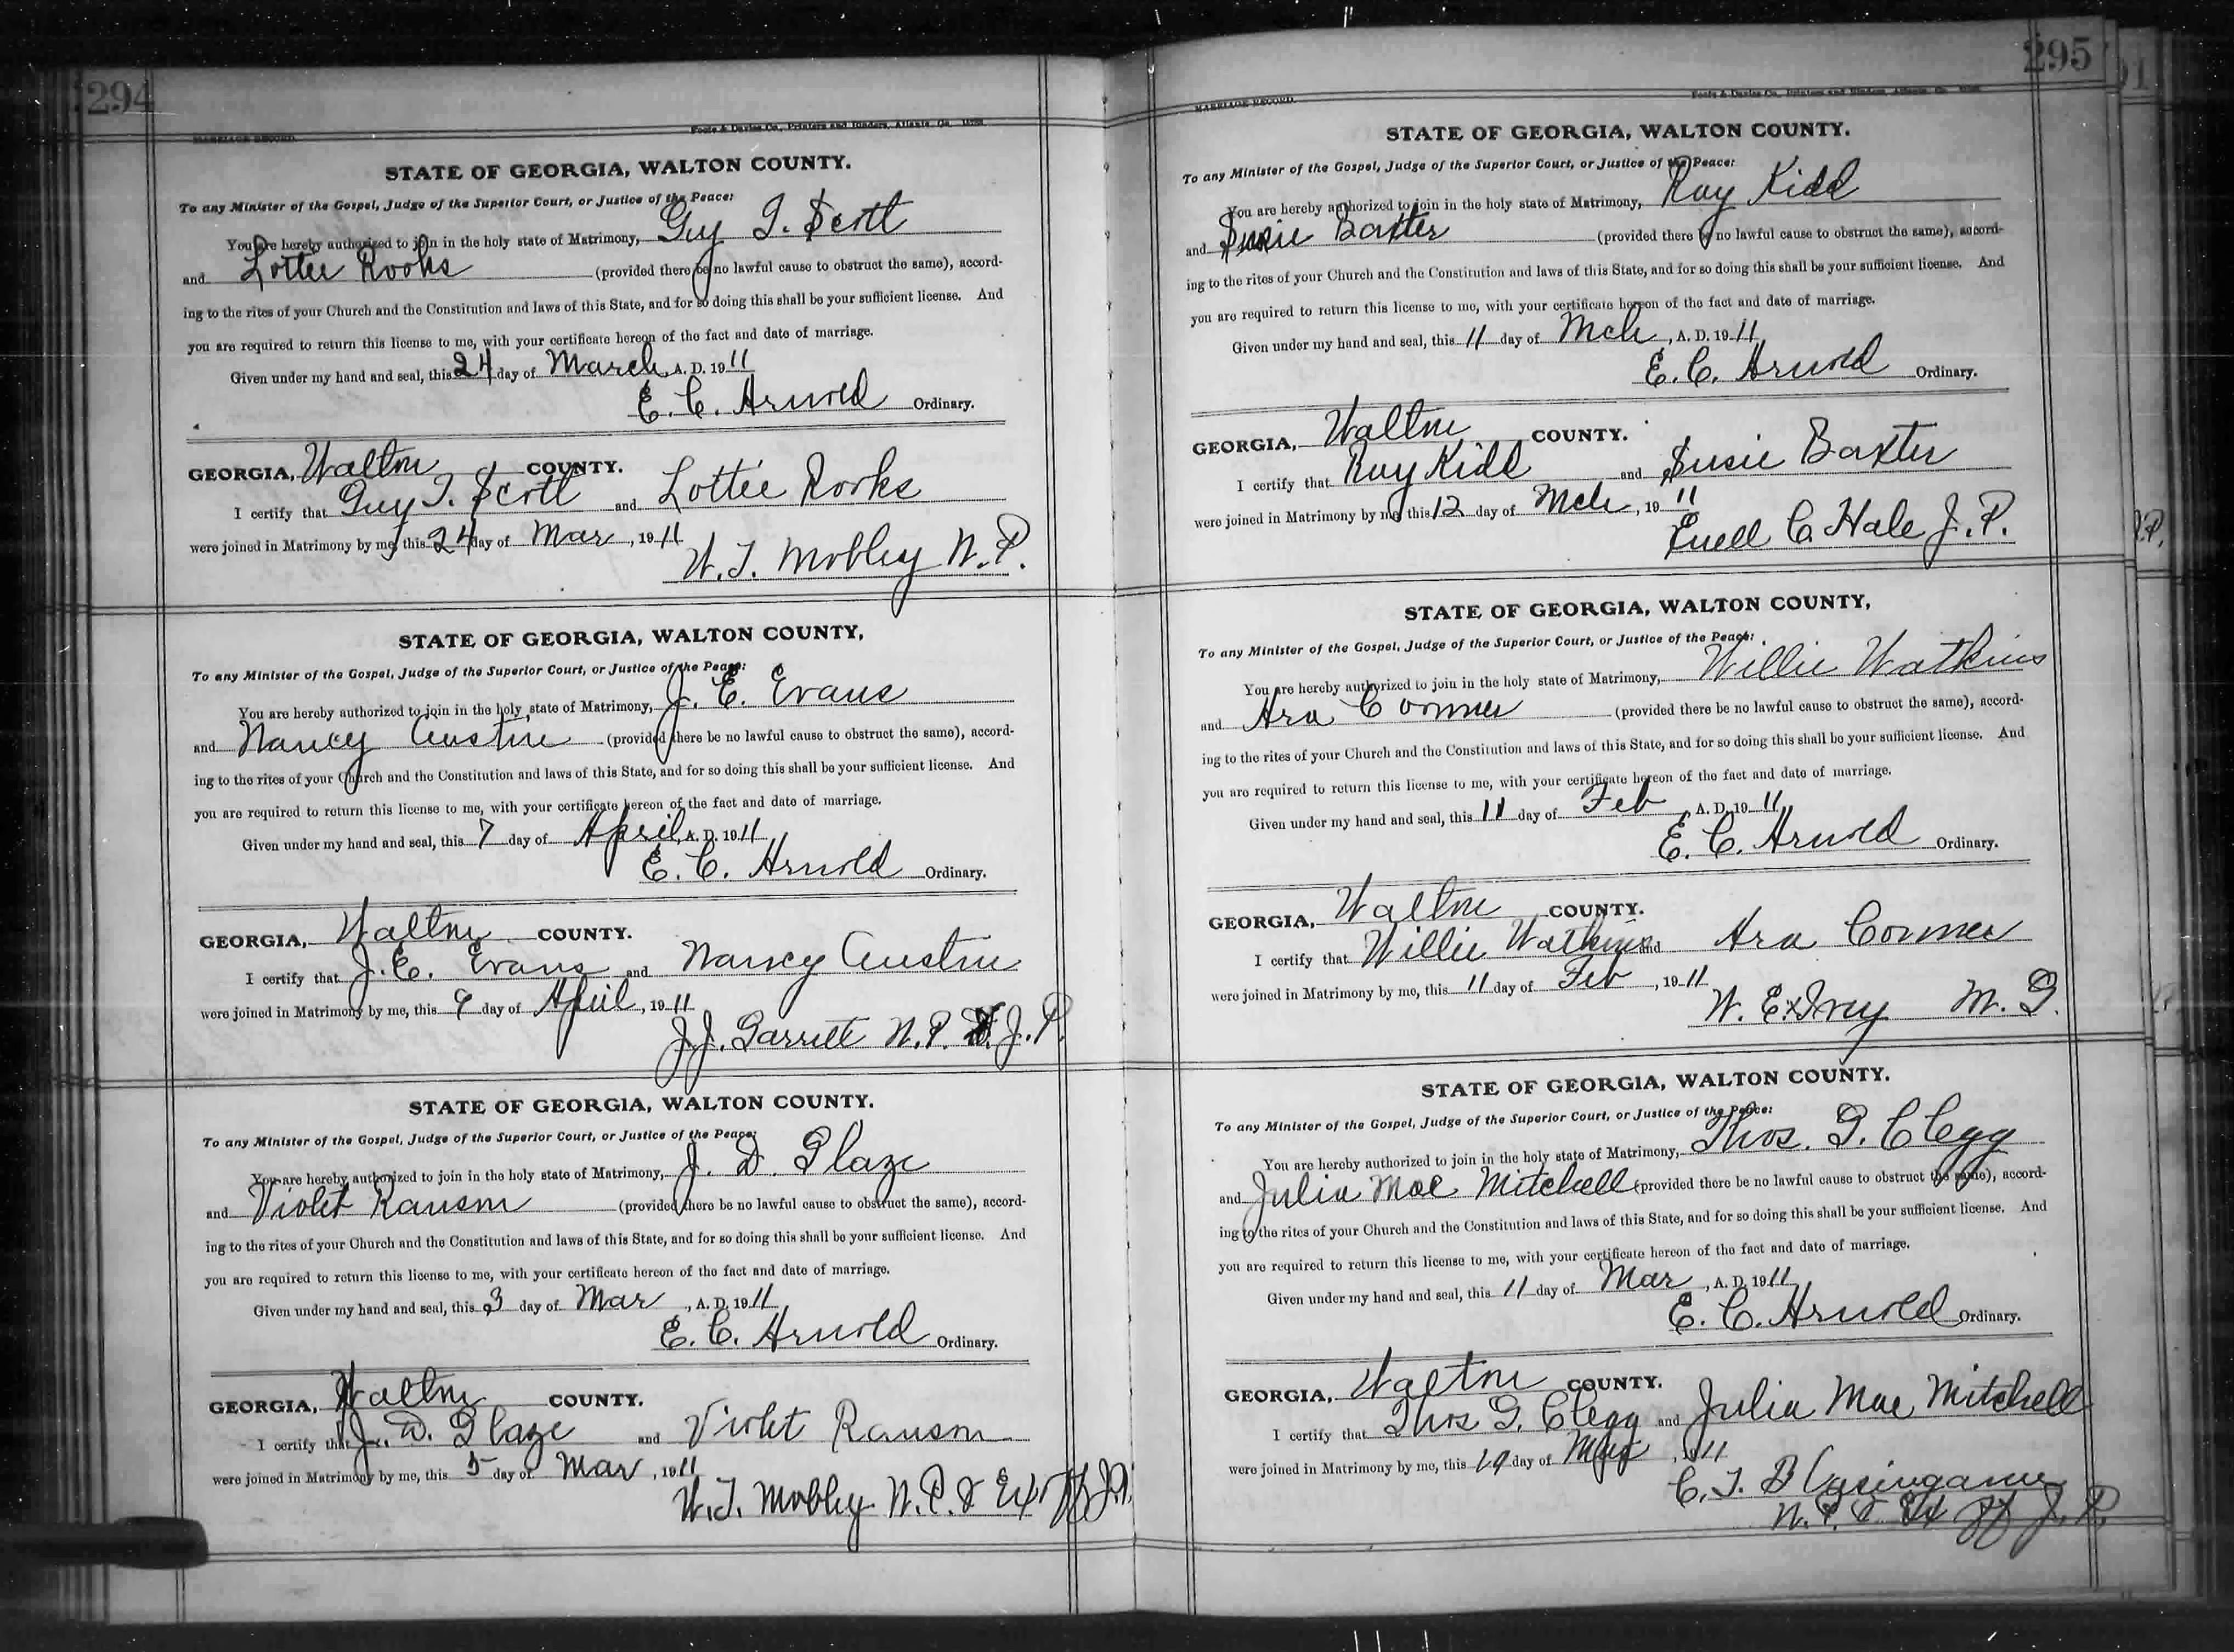 294
MARRIAGE RECORD. Foote & Davies Co., Printers and Binders, Atlanta, Ga.
STATE OF GEORGIA, WALTON COUNTY.
To any Minister of the Gospel, Judge of the Superior Court, or Justice of the Peace:
You are hereby authorized to join in the holy state of Matrimony, Guy T. Scott
and Lottie Rooks (provided there be no lawful cause to obstruct the same), accord-
ing to the rites of your Church and the Constitution and laws of this State, and for so doing this shall be your sufficient license. And
you are required to return this license to me, with your certificate hereon of the fact and date of marriage.
Given under my hand and seal, this 24 day of March, A. D. 1911
E. C. Arnold Ordinary.
GEORGIA, Walton COUNTY.
I certify that Guy T. Scott and Lottie Rooks
were joined in Matrimony by me, this 24 day of Mar, 1911
W. T. Mobley N. P.
STATE OF GEORGIA, WALTON COUNTY,
To any Minister of the Gospel, Judge of the Superior Court, or Justice of the Peace:
You are hereby authorized to join in the holy state of Matrimony, J. E. Evans
and Nancy Austin (provided there be no lawful cause to obstruct the same), accord-
ing to the rites of your Church and the Constitution and laws of this State, and for so doing this shall be your sufficient license. And
you are required to return this license to me, with your certificate hereon of the fact and date of marriage.
Given under my hand and seal, this 7 day of April, A. D. 1911
E. C. Arnold Ordinary.
GEORGIA, Walton COUNTY.
I certify that J. E. Evans and Nancy Austin
were joined in Matrimony by me, this 9 day of April, 1911
J. J. Garrett N. P. J. P.
STATE OF GEORGIA, WALTON COUNTY.
To any Minister of the Gospel, Judge of the Superior Court, or Justice of the Peace:
You are hereby authorized to join in the holy state of Matrimony, J. D. Glaze
and Violet Ransom (provided there be no lawful cause to obstruct the same), accord-
ing to the rites of your Church and the Constitution and laws of this State, and for so doing this shall be your sufficient license. And
you are required to return this license to me, with your certificate hereon of the fact and date of marriage.
Given under my hand and seal, this 3 day of Mar, A. D. 1911
E. C. Arnold Ordinary.
GEORGIA, Walton COUNTY.
I certify that J. D. Glaze and Violet Ransom
were joined in Matrimony by me, this 5 day of Mar, 1911
W. T. Mobley N. P. & Ex off J. P.
295
MARRIAGE RECORD. Foote & Davies Co., Printers and Binders, Atlanta, Ga.
STATE OF GEORGIA, WALTON COUNTY.
To any Minister of the Gospel, Judge of the Superior Court, or Justice of the Peace:
You are hereby authorized to join in the holy state of Matrimony, Roy Kidd
and Susie Baxter (provided there be no lawful cause to obstruct the same), accord-
ing to the rites of your Church and the Constitution and laws of this State, and for so doing this shall be your sufficient license. And
you are required to return this license to me, with your certificate hereon of the fact and date of marriage.
Given under my hand and seal, this 11 day of Mch, A. D. 1911
E. C. Arnold Ordinary.
GEORGIA, Walton COUNTY.
I certify that Roy Kidd and Susie Baxter
were joined in Matrimony by me, this 12 day of Mch, 1911
Euell C. Hale J. P.
STATE OF GEORGIA, WALTON COUNTY,
To any Minister of the Gospel, Judge of the Superior Court, or Justice of the Peace:
You are hereby authorized to join in the holy state of Matrimony, Willie Watkins
and Ara Conner (provided there be no lawful cause to obstruct the same), accord-
ing to the rites of your Church and the Constitution and laws of this State, and for so doing this shall be your sufficient license. And
you are required to return this license to me, with your certificate hereon of the fact and date of marriage.
Given under my hand and seal, this 11 day of Feb, A. D. 1911
E. C. Arnold Ordinary.
GEORGIA, Walton COUNTY.
I certify that Willie Watkins and Ara Conner
were joined in Matrimony by me, this 11 day of Feb, 1911
W. E. Ivey M. G.
STATE OF GEORGIA, WALTON COUNTY.
To any Minister of the Gospel, Judge of the Superior Court, or Justice of the Peace:
You are hereby authorized to join in the holy state of Matrimony, Thos. G. Clegg
and Julia Mae Mitchell (provided there be no lawful cause to obstruct the same), accord-
ing to the rites of your Church and the Constitution and laws of this State, and for so doing this shall be your sufficient license. And
you are required to return this license to me, with your certificate hereon of the fact and date of marriage.
Given under my hand and seal, this 11 day of Mar, A. D. 1911
E. C. Arnold Ordinary.
GEORGIA, Walton COUNTY.
I certify that Thos G. Clegg and Julia Mae Mitchell
were joined in Matrimony by me, this 19 day of Mar, 1911
C. T. Blasingame
N. P. & Ex off J. P.